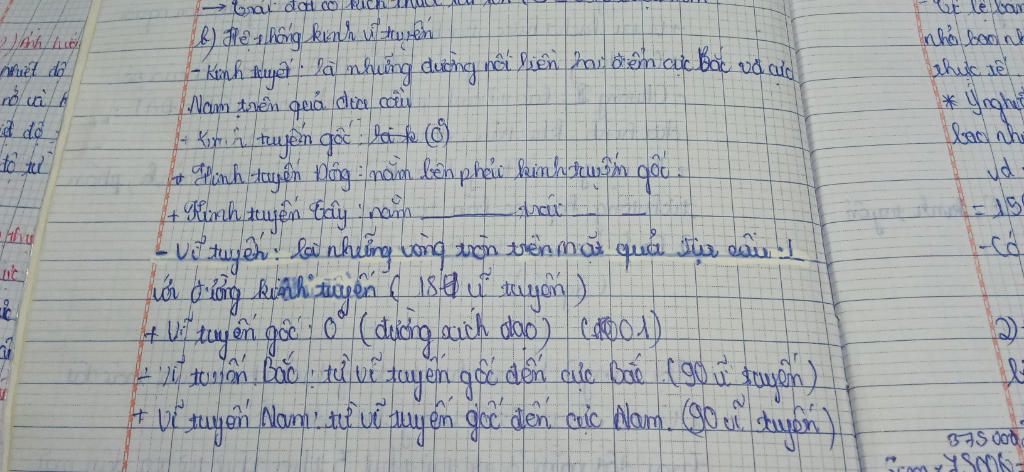 → Trái đất có kích thước
b) Hệ thống kinh vĩ tuyến
- Kinh tuyến: là những đường nối liền hai điểm cực Bắc và cực
Nam trên quả địa cầu
+ Kinh tuyến gốc: (0°)
+ Kinh tuyến Đông: nằm bên phải kinh tuyến gốc.
+ Kinh tuyến Tây: nằm ______ trái __ __
- Vĩ tuyến: là những vòng tròn trên mặt quả địa cầu ⊥
với đường kinh tuyến ( 181 vĩ tuyến )
+ Vĩ tuyến gốc: 0° (đường xích đạo) (01)
+ Vĩ tuyến Bắc: từ vĩ tuyến gốc đến cực Bắc. (90 vĩ tuyến)
+ Vĩ tuyến Nam: từ vĩ tuyến gốc đến cực Nam. (90 vĩ tuyến)
nhiệt độ
- Tỉ lệ bản
nhỏ bao nh
thực tế.
* Ý nghĩ
bao nh
vd
= 15
- Có
2)
375000